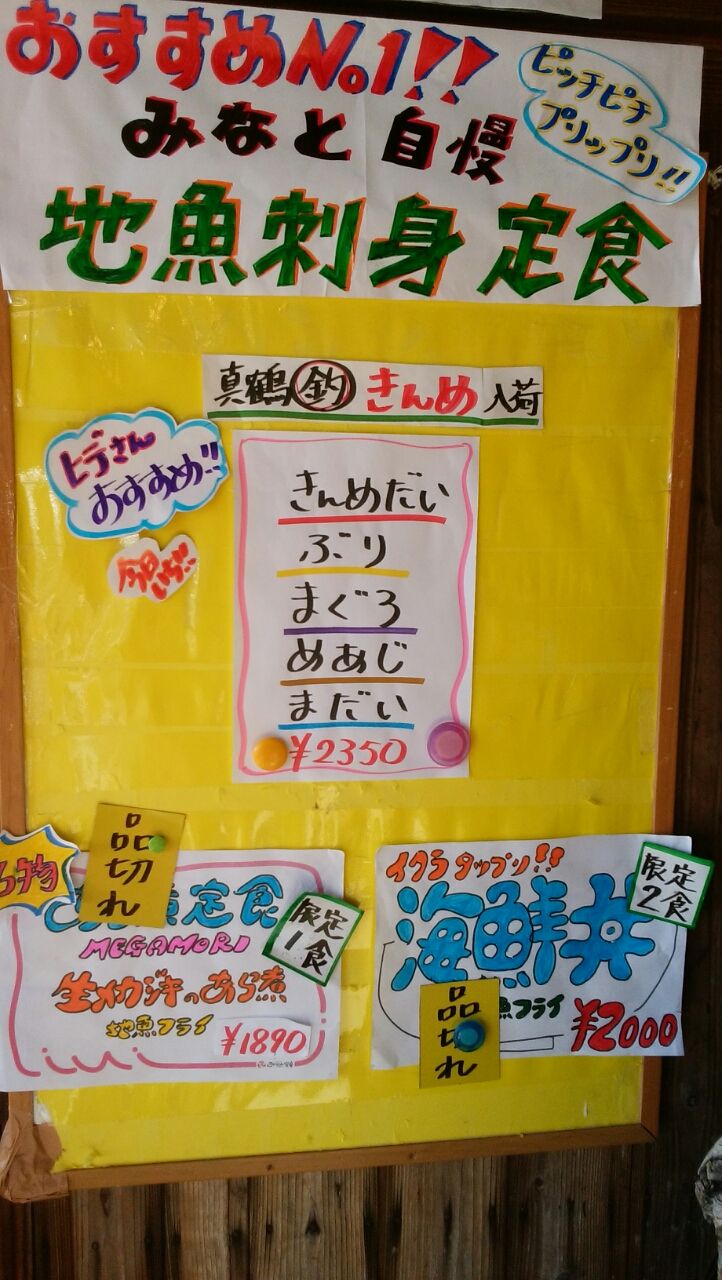 おすすめNo.1!!
ピッチピチ
プリップリ!!
みなと自慢
地魚刺身定食
真鶴釣きんめ入荷
ヒデさん
おすすめ!!
今日イチ!!
きんめだい
ぶり
まぐろ
めあじ
まだい
¥2350
品切れ
煮定食
限定
1食
MEGAMORI
生メカジキのあら煮
地魚フライ
¥1890
イクラタップリ!!
海鮮丼
限定
2食
品切れ
魚フライ
¥2000